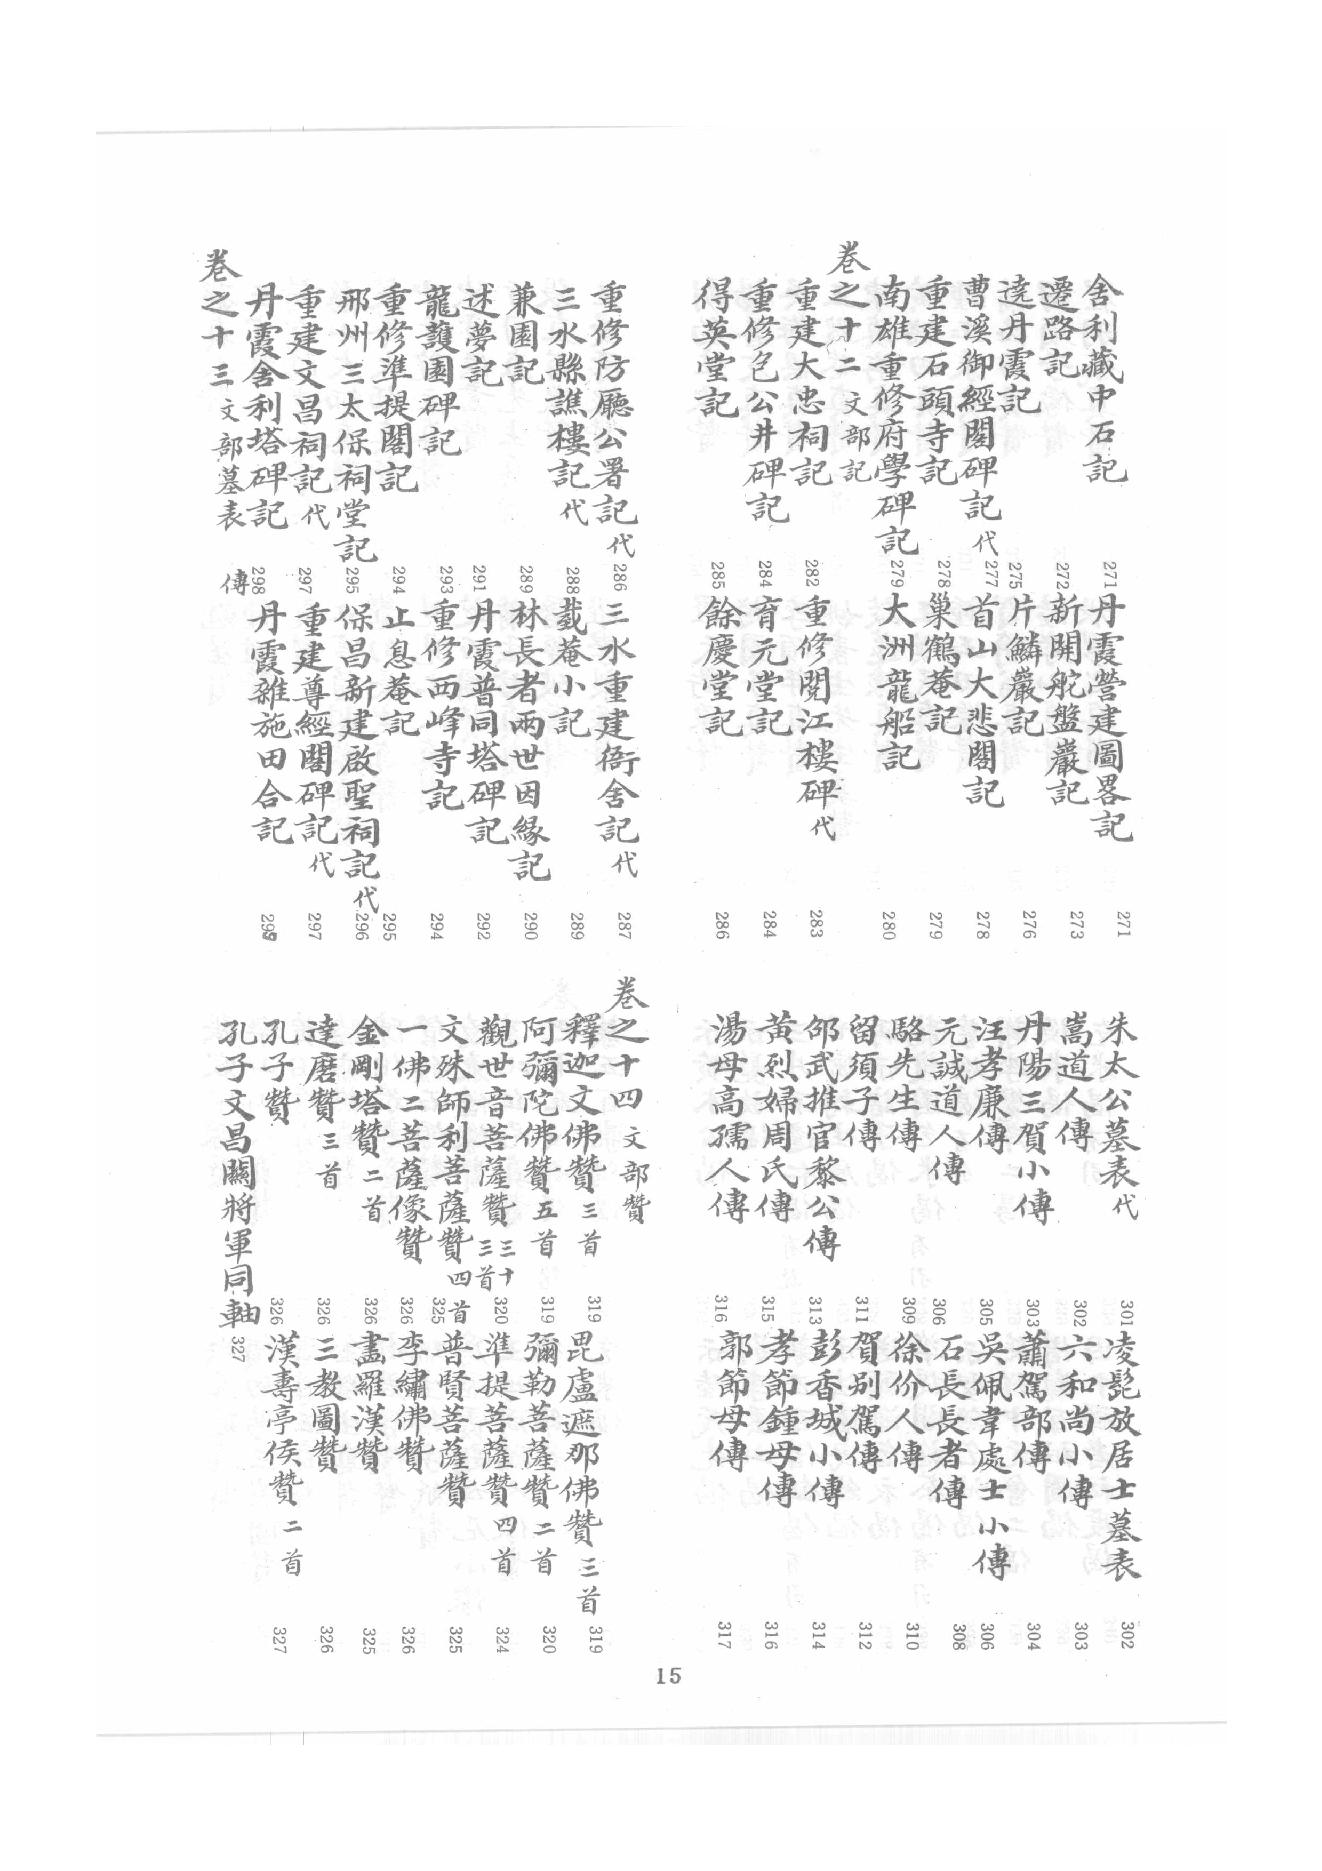 舍利藏中石記 271 丹霞營建圖畧記 271
遷路記 272 新開舵盤巖記 273
遶丹霞記 275 片鱗巖記 276
曹溪御經閣碑記代 277 首山大悲閣記 278
重建石頭寺記 278 巢鶴菴記 279
南雄重修府學碑記 279 大洲龍船記 280
卷之十二 文部記
重建大忠祠記 282 重修閱江樓碑代 283
重修包公井碑記 284 育元堂記 284
得英堂記 285 餘慶堂記 286
重修防廳公署記代 286 三水重建衙舍記代 287
三水縣譙樓記代 288 㦲菴小記 289
兼園記 289 林長者兩世因緣記 290
述夢記 291 丹霞普同塔碑記 292
龍護園碑記 293 重修西峰寺記 294
重修準提閣記 294 止息菴記 295
邢州三太保祠堂記 295 保昌新建啟聖祠記代 296
重建文昌祠記代 297 重建尊經閣碑記代 297
丹霞舍利塔碑記 298 丹霞雜施田合記 299
卷之十三 文部墓表 傳
朱太公墓表代 301 凌髭放居士墓表 302
嵩道人傳 302 六和尚小傳 303
丹陽三賀小傳 303 蕭駕部傳 304
汪孝廉傳 305 吳佩韋處士小傳 306
元誠道人傳 306 石長長者傳 308
駱先生傳 309 徐价人傳 310
留須子傳 311 賀別駕傳 312
邵武推官黎公傳 313 彭香城小傳 314
黃烈婦周氏傳 315 孝節鍾母傳 316
湯母高孺人傳 316 郭節母傳 317
卷之十四 文部贊
釋迦文佛贊三首 319 毘盧遮那佛贊三首 319
阿彌陀佛贊五首 319 彌勒菩薩贊二首 320
觀世音菩薩贊三十三首 320 準提菩薩贊四首 324
文殊師利菩薩贊四首 325 普賢菩薩贊 325
一佛二菩薩像贊 326 李繡佛贊 326
金剛塔贊二首 326 畫羅漢贊 325
達磨贊三首 326 三教圖贊 326
孔子贊 326 漢壽亭侯贊二首 327
孔子文昌關將軍同軸 327
15